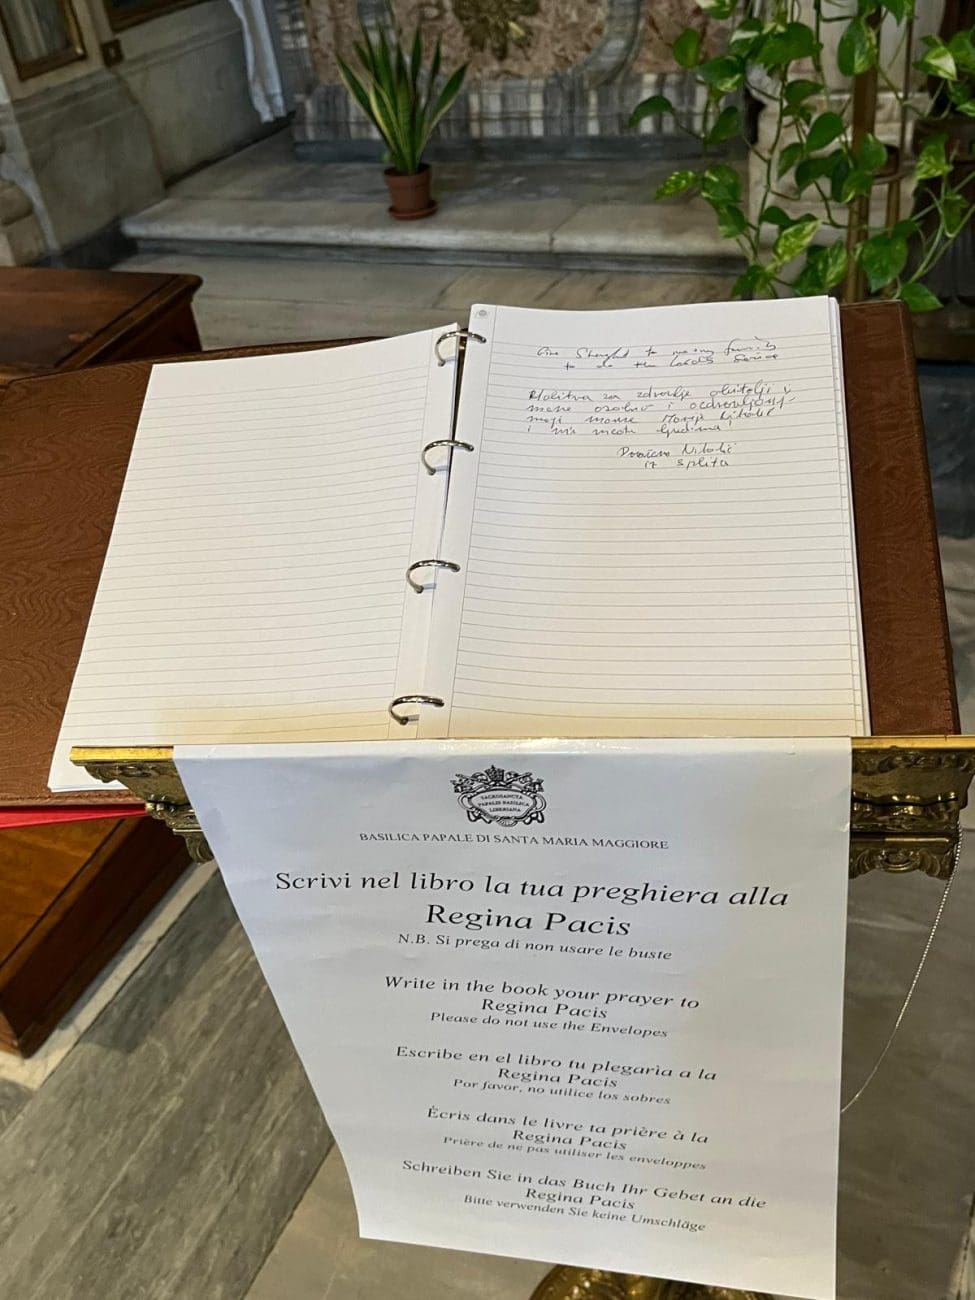 Give Strenght to my family
to do the Lord's Service
Molitva za zdravlje obitelji i
mene osobno i ozdravljenj
moje mame Marije Nikolić
i
Nikolić
iz Splita
SACROSANCTA
PAPALIS BASILICA
LIBERIANA
BASILICA PAPALE DI SANTA MARIA MAGGIORE
Scrivi nel libro la tua preghiera alla
Regina Pacis
N.B. Si prega di non usare le buste
Write in the book your prayer to
Regina Pacis
Please do not use the Envelopes
Escribe en el libro tu plegarìa a la
Regina Pacis
Por favor, no utilice los sobres
Écris dans le livre ta prière à la
Regina Pacis
Prière de ne pas utiliser les enveloppes
Schreiben Sie in das Buch Ihr Gebet an die
Regina Pacis
Bitte verwenden Sie keine Umschläge